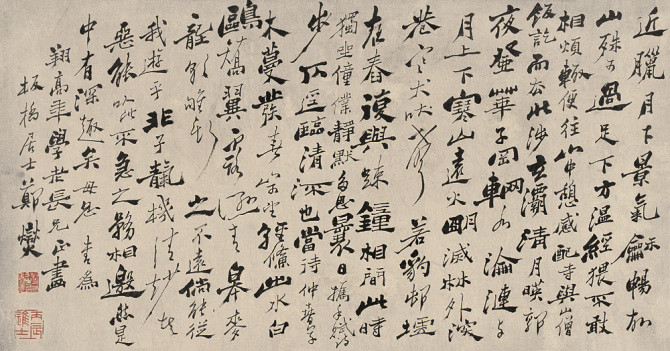 近臘月下景氣龢暢故
山殊可過足下方温經猥不敢
相煩輒便往山中憩感配寺與山僧
飯訖而去北涉玄灞清月暎郭
夜登華子岡輞水淪漣與
月上下寒山遠火明滅林外深
巷寒犬吠聲
若豹邨墟
夜舂復與疎鐘相間此時
獨坐僮僕靜默多思曩日攜手賦詩
步仄逕臨清流也當待仲春草
木蔓發春山可望輕鯈出水白
鷗矯翼露濕青皋麥
隴朝雊斯之不遠倘能從
我遊乎非子天機清妙者
惡能以此不急之務相邀然是
中有深趣矣毋忽 書為
翔高年學老長兄正畫
板橋居士鄭燮
丙辰進士